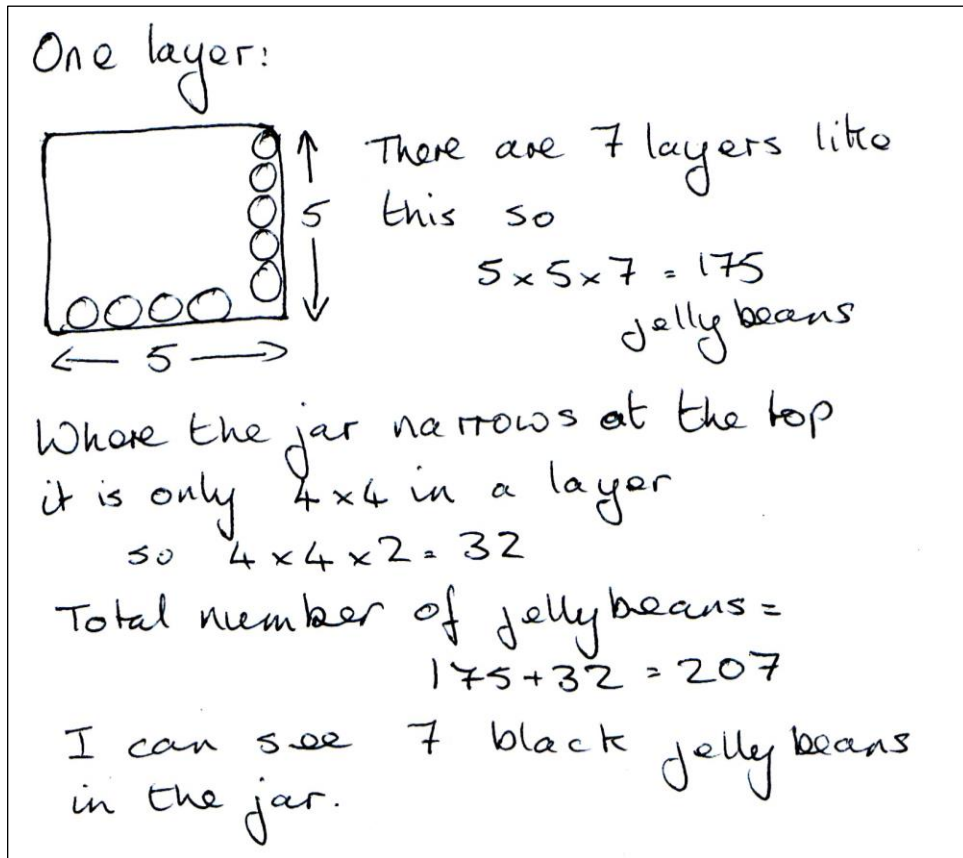 One layer:
There are 7 layers like
this so
5
5 × 5 × 7 = 175
jellybeans
5
Where the jar narrows at the top
it is only 4 × 4 in a layer
so 4 × 4 × 2 = 32
Total number of jellybeans =
175 + 32 = 207
I can see 7 black jellybeans
in the jar.